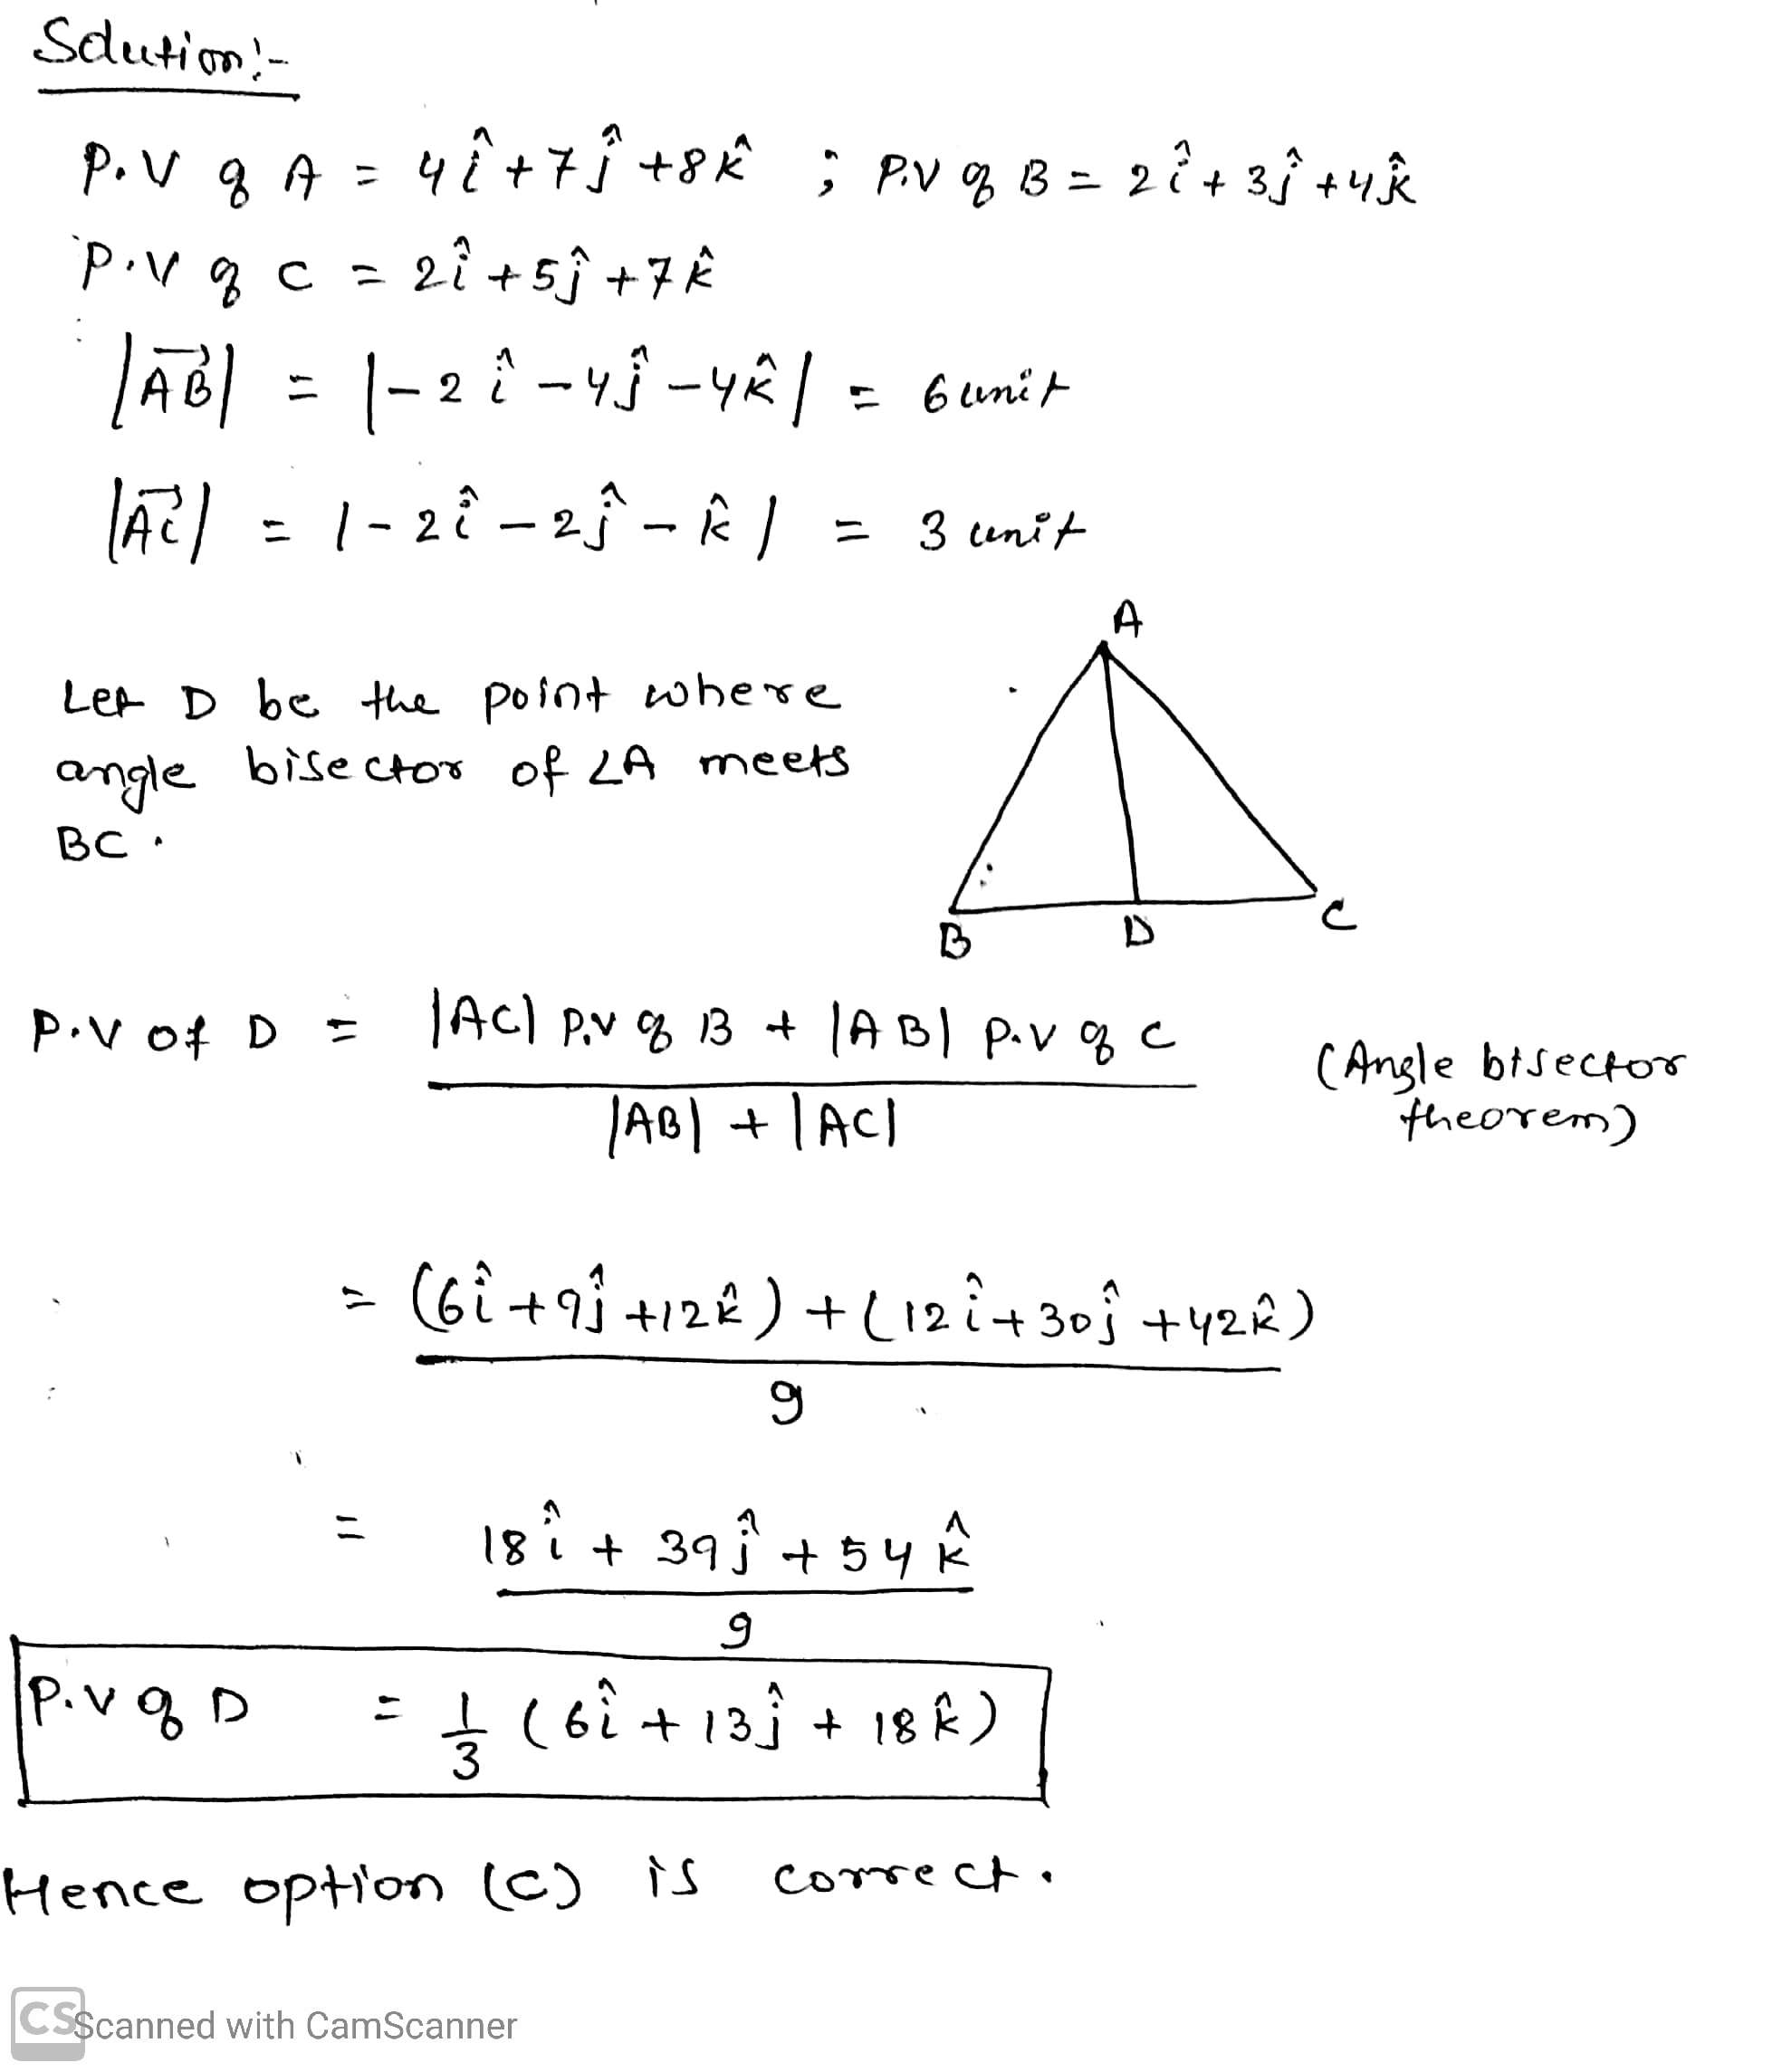 Solution:-
P.V of A = 4î + 7ĵ + 8k̂ ; P.V of B = 2î + 3ĵ + 4k̂
P.V of C = 2î + 5ĵ + 7k̂
|AB⃗| = |-2î - 4ĵ - 4k̂| = 6 unit
|AC⃗| = |-2î - 2ĵ - k̂| = 3 unit
A
Let D be the point where
angle bisector of ∠A meets
BC.
B D C
P.V of D = |AC| P.V of B + |AB| P.V of C
(Angle bisector
theorem)
|AB| + |AC|
= (6î + 9ĵ + 12k̂) + (12î + 30ĵ + 42k̂)
9
= 18î + 39ĵ + 54k̂
9
P.V of D = 1/3 (6î + 13ĵ + 18k̂)
Hence option (C) is correct.
CS Scanned with CamScanner